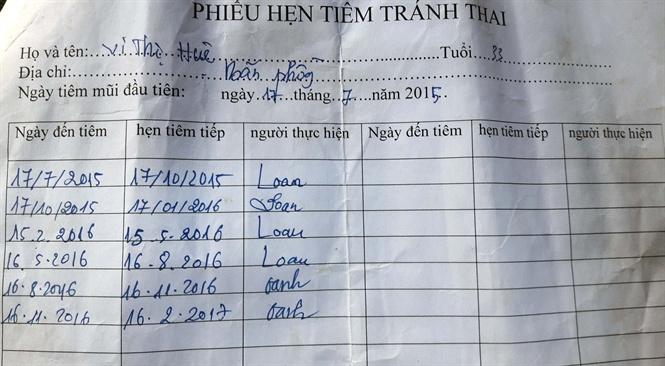 PHIẾU HẸN TIÊM TRÁNH THAI
Họ và tên:...Vi Thị Huê...Tuổi...33
Địa chỉ:...Bản phồng
Ngày tiêm mũi đầu tiên: ngày 17...tháng...7...năm 2015.
Ngày đến tiêm hẹn tiêm tiếp người thực hiện Ngày đến tiêm hẹn tiêm tiếp người thực hiện
17/7/2015 17/10/2015 Loan
17/10/2015 17/01/2016 Loan
15.2.2016 15.5.2016 Loan
16.5.2016 16.8.2016 Loan
16.8.2016 16.11.2016 oanh
16.11.2016 16.2.2017 oanh